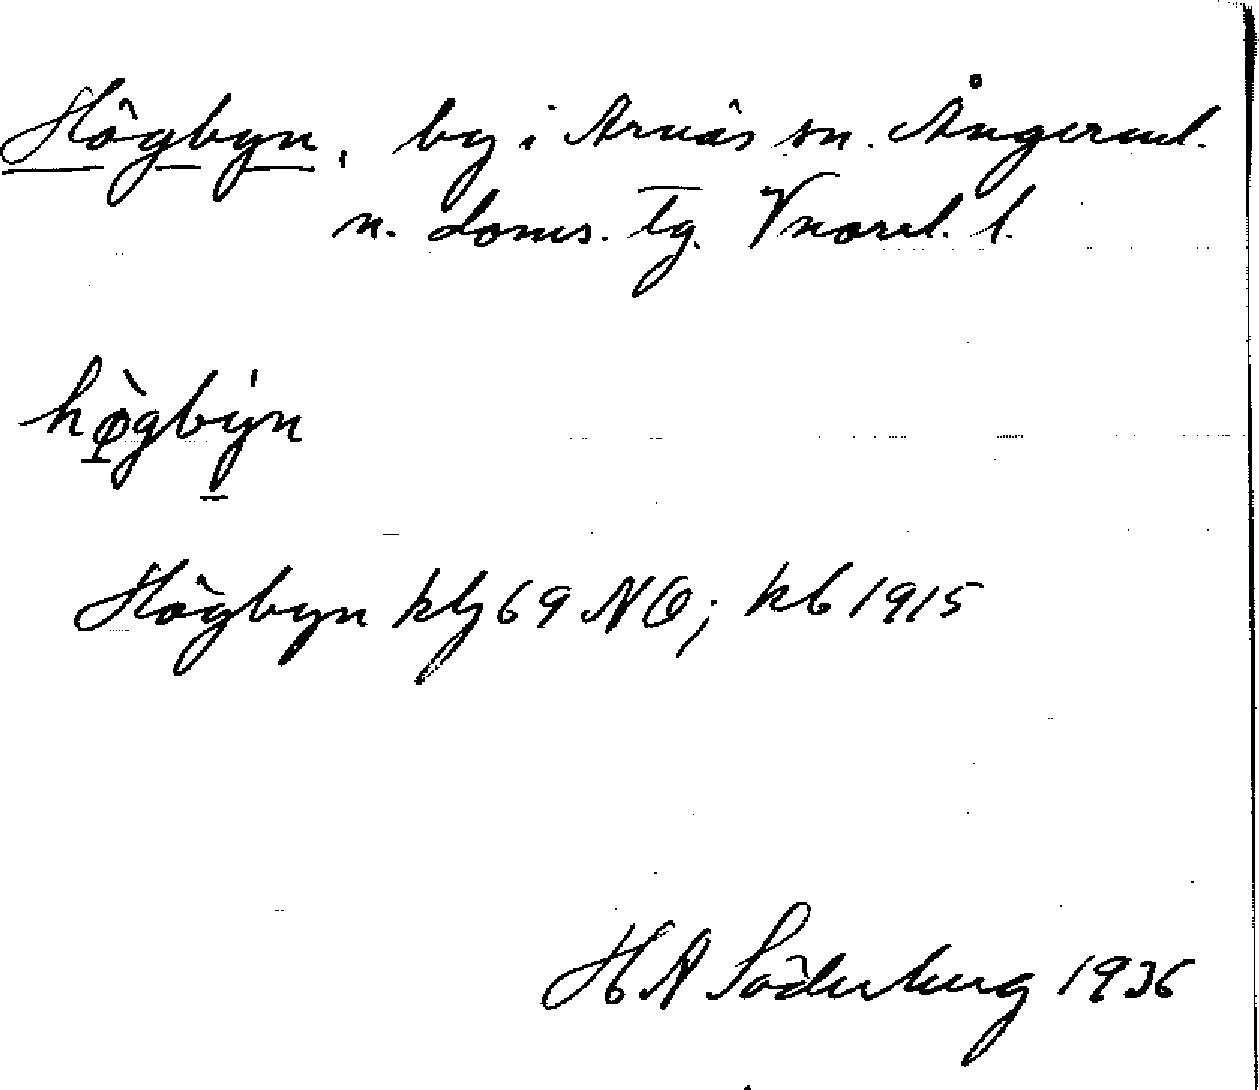 Högbyn, by i Arnäs sn. Ångerml.
n. doms. tg. Vnorrl. l.
hø̀gbýn
Högbyn kbj 69 NO; kb 1915
H A Söderberg 1936